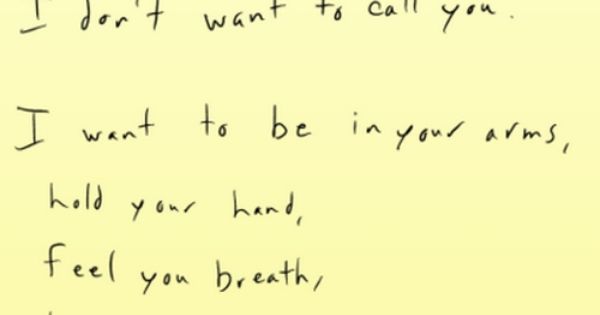 I don't want to call you.
I want to be in your arms,
hold your hand,
feel you breath,